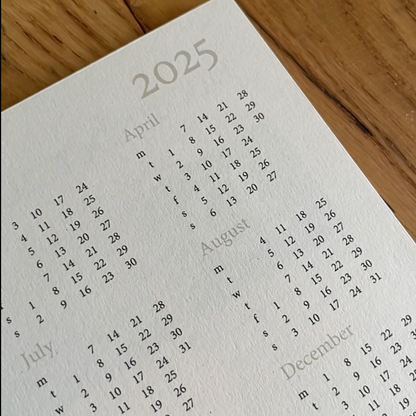 2025
April
m 7 14 21 28
t 1 8 15 22 29
w 2 9 16 23 30
t 3 10 17 24
f 4 11 18 25
s 5 12 19 26
s 6 13 20 27
3 10 17 24
4 11 18 25
5 12 19 26
6 13 20 27
7 14 21 28
s 1 8 15 22 29
s 2 9 16 23 30
August
m 4 11 18 25
t 5 12 19 26
w 6 13 20 27
t 7 14 21 28
f 1 8 15 22 29
s 2 9 16 23 30
s 3 10 17 24 31
July
m 7 14 21 28
t 1 8 15 22 29
w 2 9 16 23 30
3 10 17 24 31
11 18 25
December
m 1 8 15 22 29
t 2 9 16 23
w 3 10 17